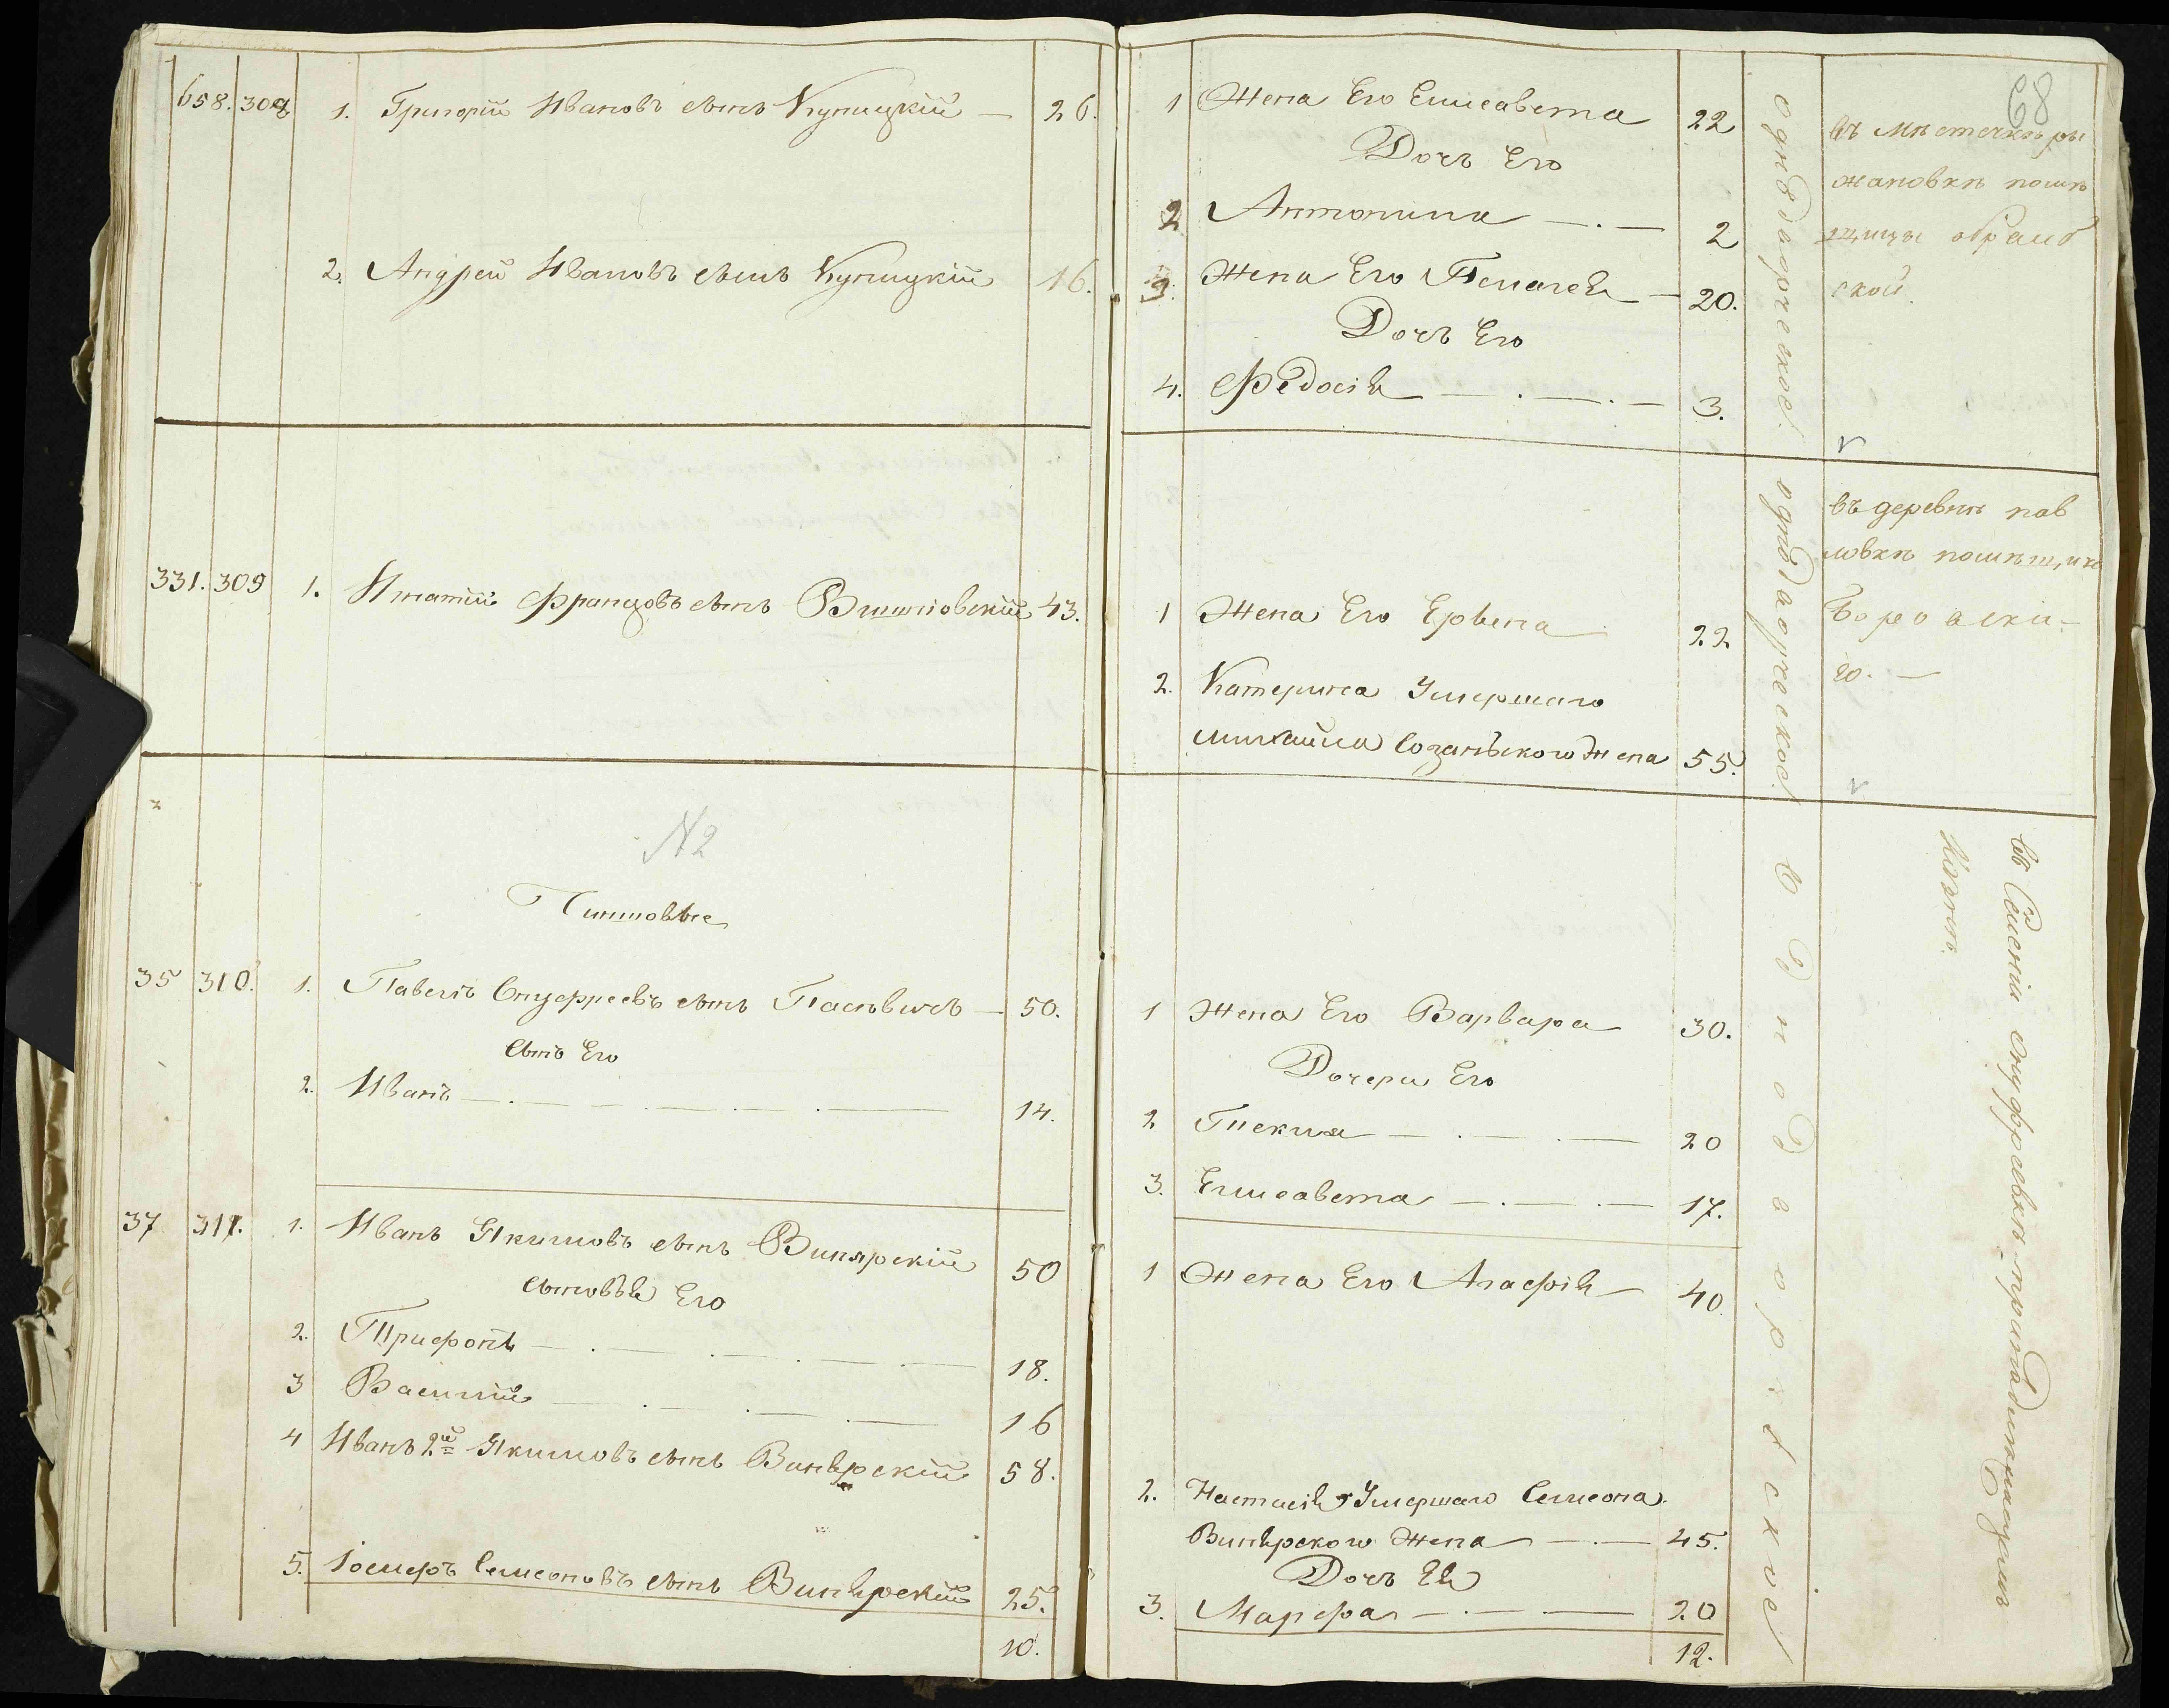 658. 308 1. Григорій Ивановъ сынъ Купицкій — 26.
2. Андрей Ивановъ сынъ Купицкій 16.
331. 309 1. Игнатій Францовъ сынъ Вишніовскій 43.
N2
Чиншовые
35 310. 1. Павелъ Онуфріевъ сынъ — 50.
Сынъ Его
2. Иванъ — 14.
37 311. 1. Иванъ Якимовъ сынъ Винярскій 50
Сыновья Его
2. Трифонъ — 18.
3 Василій — 16
4 Иванъ 2й Якимовъ сынъ Винярскій 58.
5. Іосифъ Семеоновъ сынъ Винярскій 25.
10.
68
1 Жена Его Елисавета 22
Дочь Его
2 Антонина — 2
3. Жена Его Пелагея — 20.
Дочь Его
4. Федосія — 3.
однодворческое
въ мѣстечкѣ ры
жановкѣ помѣ
щицы
ской
1 Жена Его 22
2. Катерина Умершаго
Михайла Созанского Жена 55.
однодворческое
въ деревнѣ пав
ловкѣ помѣщика
го. —
1 Жена Его Варвара 30.
Дочери Его
2 Текля — 20
3. Елисавета — 17.
1 Жена Его Агафія — 40.
2. Настасія Умершаго Семеона
Винярского Жена — 45.
Дочь Ея
3. Марфа — 20
12.
Однодворческое
въ Селеніи Онуфравкѣ